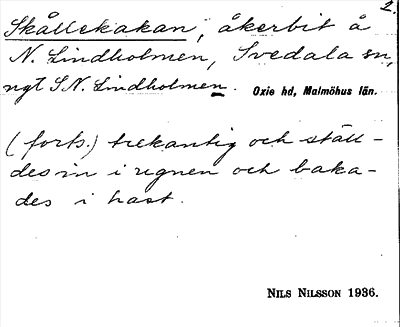 2.
Skållekakan, åkerbit å
N. Lindholmen, Svedala sn,
ngt S.N. Lindholmen. Oxie hd, Malmöhus län.
(forts.) trekantig och ställ-
des in i ugnen och baka-
des i hast.
NILS NILSSON 1936.